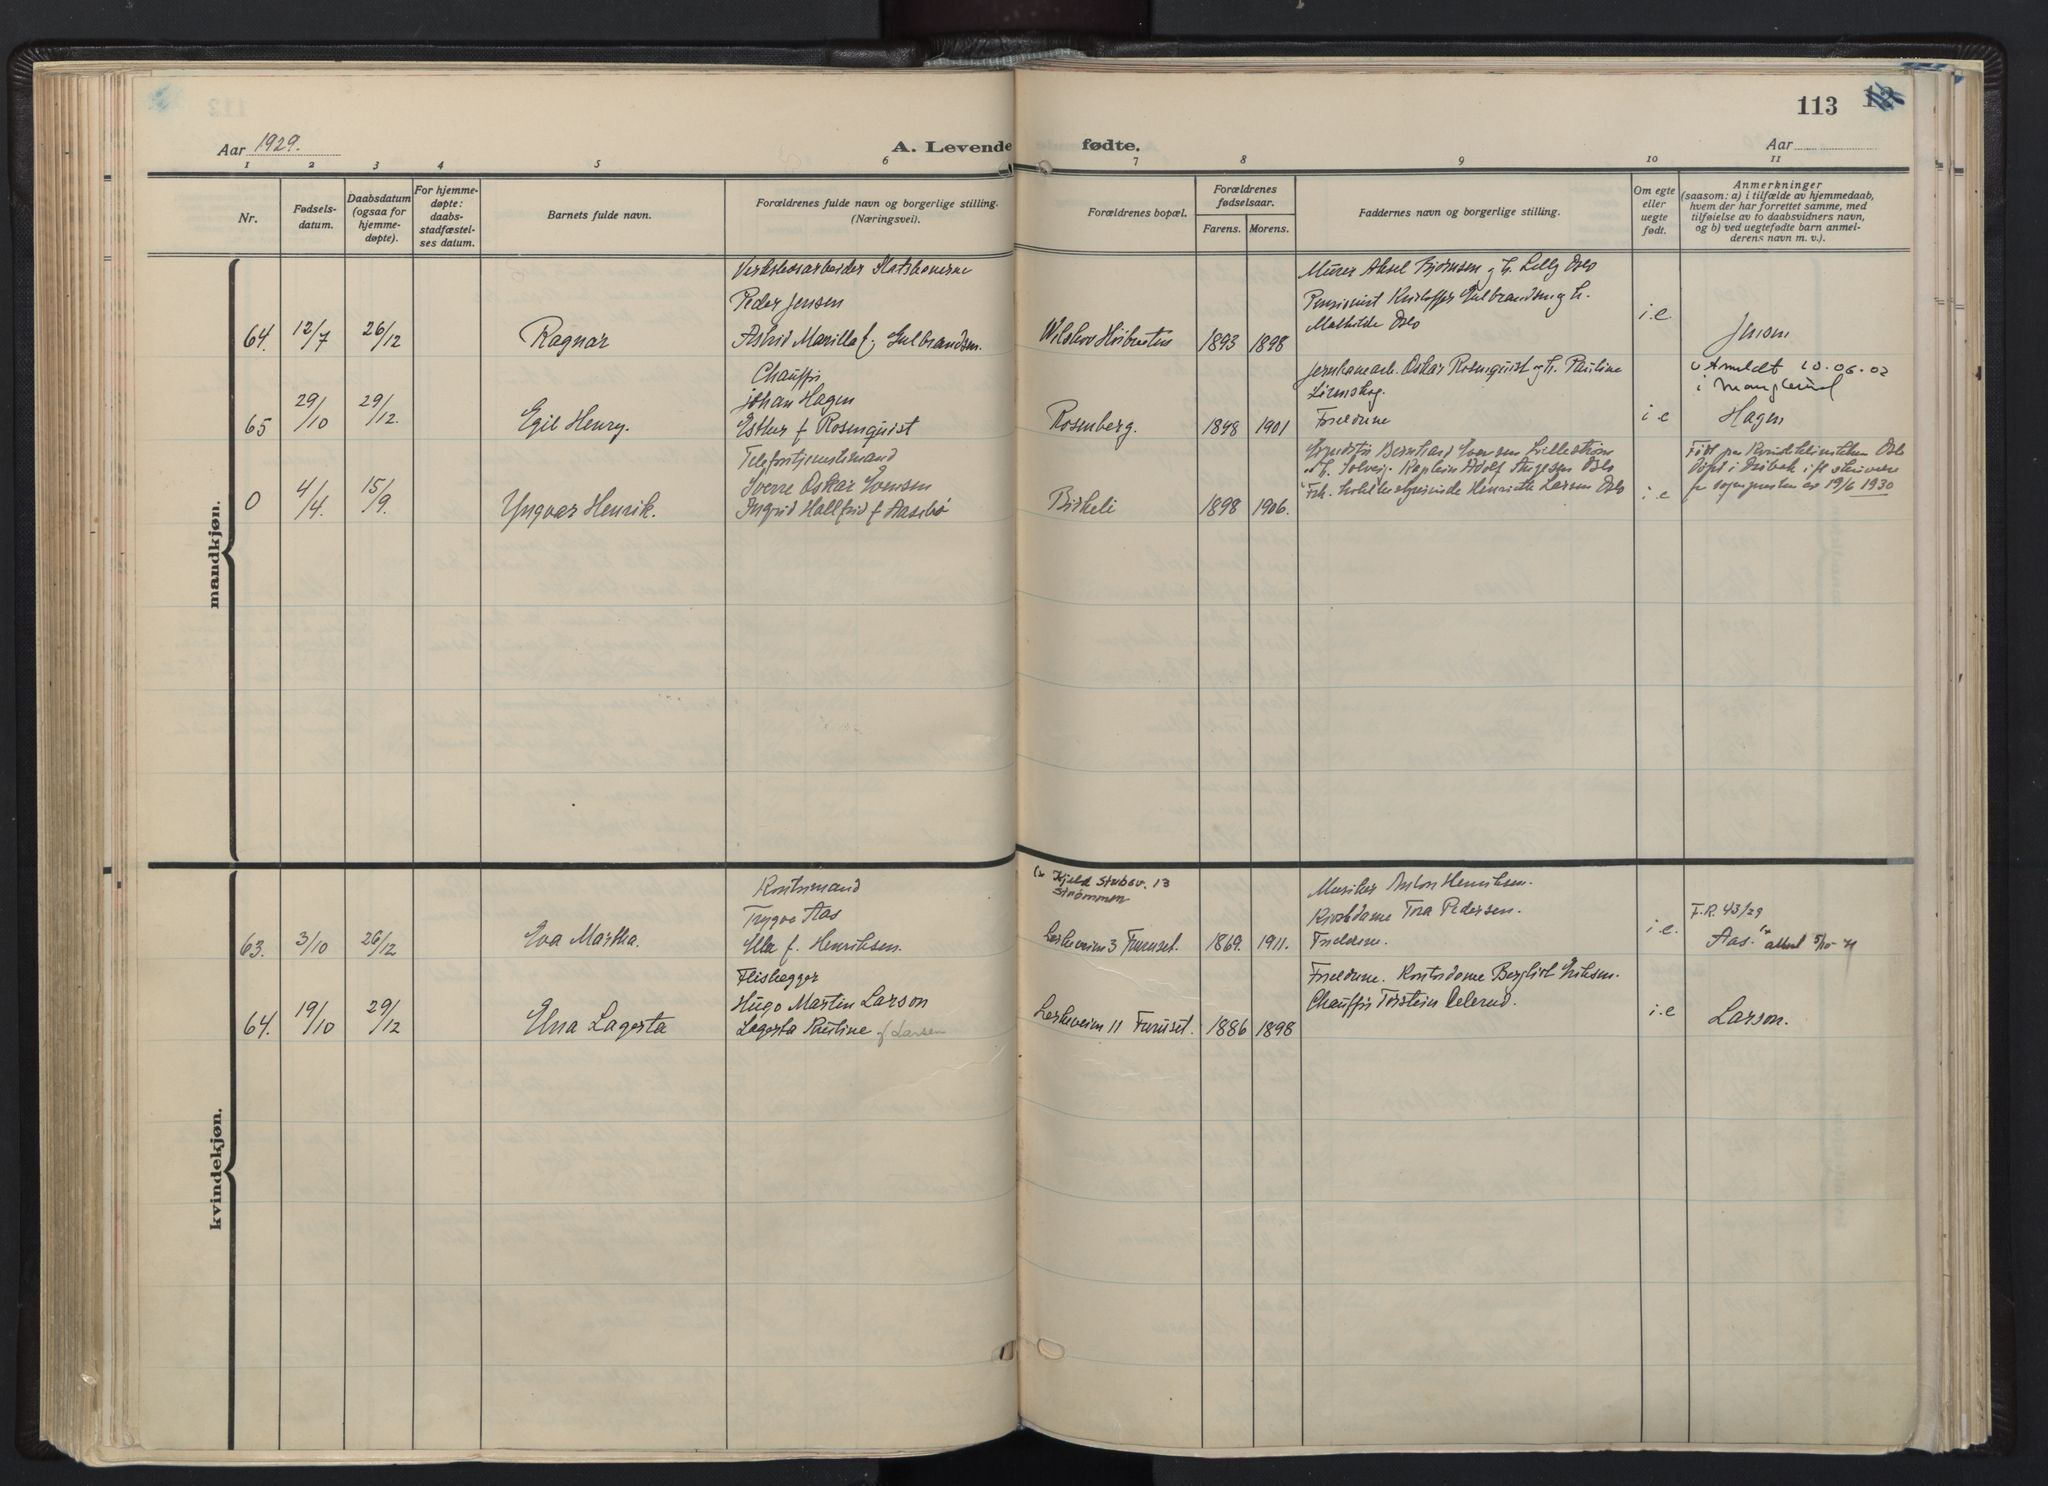 113
Aar 1929.
A. Levende fødte.
Aar
1 2 3 4 5 6 7 8 9 10 11
Nr.
Fødsels-
datum.
Daabsdatum
(ogsaa for
hjemme-
døpte).
For hjemme-
døpte:
daabs-
stadfæstel-
ses datum.
Barnets fulde navn.
Forældrenes fulde navn og borgerlige stilling.
(Næringsvei).
Forældrenes bopæl.
Forældrenes
fødselsaar.
Farens. Morens.
Faddernes navn og borgerlige stilling.
Om egte
eller
uegte
født.
Anmerkninger
(saasom: a) i tilfælde av hjemmedaab,
hvem der har forrettet samme, med
tilføielse av to daabsvidners navn,
og b) ved uegtefødte barn anmel-
derens navn m. v.).
mandkjøn.
64. 12/7 26/12 Ragnar
Verkstedsarbeider Statsbanerne
Peder Jensen
Astrid Marilla f. Gulbrandsen.
1893 1898
Murer Aksel Bjørnsen og h. Lilly Oslo
Pensionist Kristoffer Gulbrandsen og h.
Mathilde Oslo
i.e.
Jensen
65 29/10 29/12. Egil Henry.
Chauffør
Johan Hagen
Esther f Rosenquist
Rosenberg. 1898 1901
Oskar Rosenquist og h. Pauline
Lørenskog.
Foreldrene
i e
Anmeldt 10.06.02
i Manglerud
Hagen
0 4/4. 15/9. Yngvar Henrik.
Telefontjenestemand
Sverre Oskar Evensen
Ingrid Hallfrid f Aasebø
Birkeli 1898 1906.
Bernhard Evensen Lillestrøm
og h. Solveig. Kaptein Adolf Oslo
Frk. Henriette Larsen Oslo
i e
Født paa Kvindeklinikken Oslo
Døpt i Drøbak
19/6 1930
kvindekjøn.
63. 3/10 26/12 Eva Martha.
Kontormand
Trygve Aas
Ella f. Henriksen.
Kjeld Stubsv. 13
Strømmen
3 Furuset. 1869. 1911.
Musiker Anton Henriksen.
Tora Pedersen.
Foreldrene.
i.e.
F.R. 43/29
Aas.
64. 19/10 29/12 Elna Lagerta
Flislegger
Hugo Martin Larson
Lagerta Pauline f Larsen
11 Furuset. 1886 1898
Foreldrene. Kontordame Bergliot Eriksen.
Chauffør Torstein
i.e
Larson.